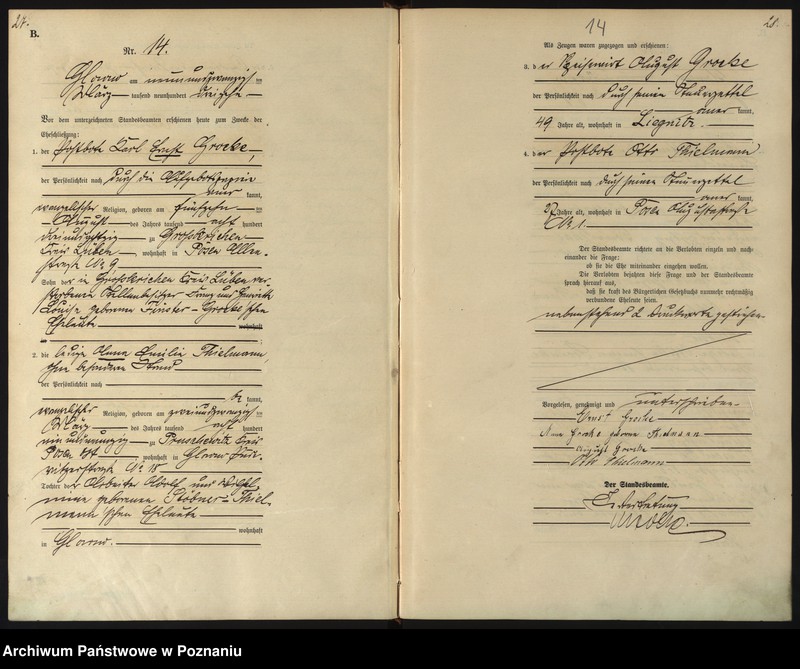 27.
B.
Nr. 14.
am neunundzwanzig ten
März tausend neunhundert dreizehn
Vor dem unterzeichneten Standesbeamten erschienen heute zum Zwecke der
Eheschließung:
1. der Postbote Karl Ernst Grocke,
der Persönlichkeit nach durch die
kannt,
evangelischer Religion, geboren am fünfzehn ten
August des Jahres tausend acht hundert
zu Großkrichen
Kreis Lüben, wohnhaft in Posen
straße Nr. 9
Sohn der in Großkrichen Kreis Lüben ver-
storbenen
Louise geborener Grocke'schen
Eheleute wohnhaft
in
2. die ledige Anna Emilie Thielmann,
ohne besonderen Stand
der Persönlichkeit nach
be kannt,
evangelischer Religion, geboren am zweiundzwanzig ten
März des Jahres tausend acht hundert
einundneunzig zu Kreis
Posen Ost, wohnhaft in
Nr. 18
Tochter der Arbeiter Adolf und Wilhel-
mine geborenen Stöbner-Thiel-
mann'schen Eheleute
wohnhaft
in
14
28.
Als Zeugen waren zugezogen und erschienen:
3. der August Grocke
der Persönlichkeit nach durch seinen Steuerzettel
kannt,
49 Jahre alt, wohnhaft in Liegnitz.
4. der Postbote Otto Thielmann
der Persönlichkeit nach durch seinen Steuerzettel
kannt,
27 Jahre alt, wohnhaft in Posen Augustastraße
Nr. 1
Der Standesbeamte richtete an die Verlobten einzeln und nach-
einander die Frage:
ob sie die Ehe miteinander eingehen wollen.
Die Verlobten bejahten diese Frage und der Standesbeamte
sprach hierauf aus,
daß sie kraft des Bürgerlichen Gesetzbuchs nunmehr rechtmäßig
verbundene Eheleute seien.
nebenstehend 2 Druckworte gestrichen
Vorgelesen, genehmigt und unterschrieben
Ernst Grocke
Anna Grocke geborne Thielmann
August Grocke
Otto Thielmann
Der Standesbeamte.
In Vertretung
Archiwum Państwowe w Poznaniu